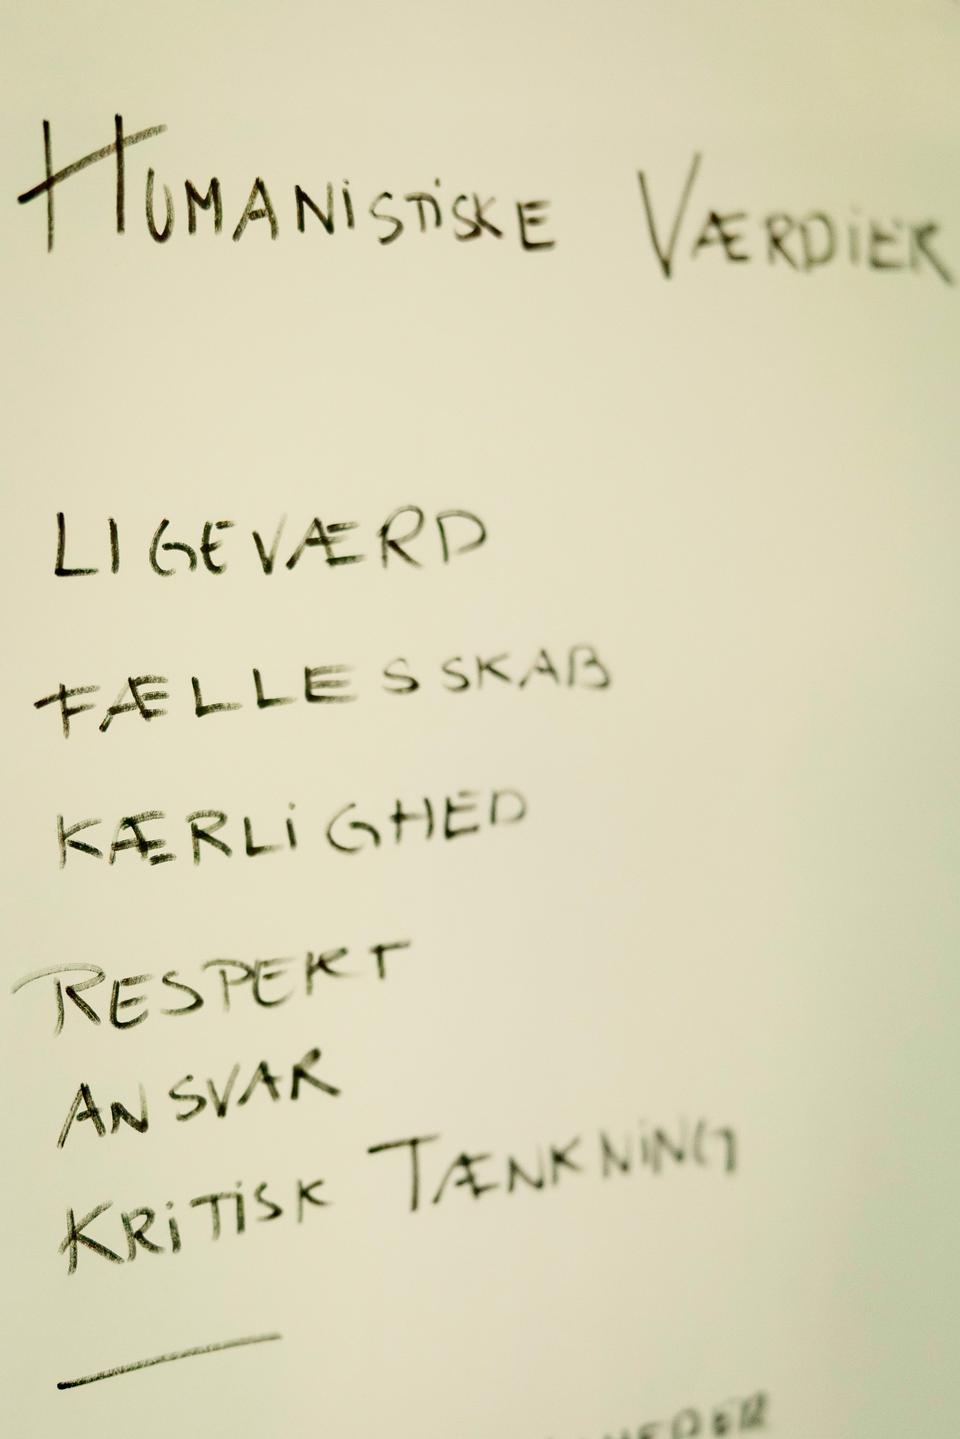 HUMANISTISKE VÆRDIER
LIGEVÆRD
FÆLLESSKAB
KÆRLIGHED
RESPEKT
ANSVAR
KRITISK TÆNKNING